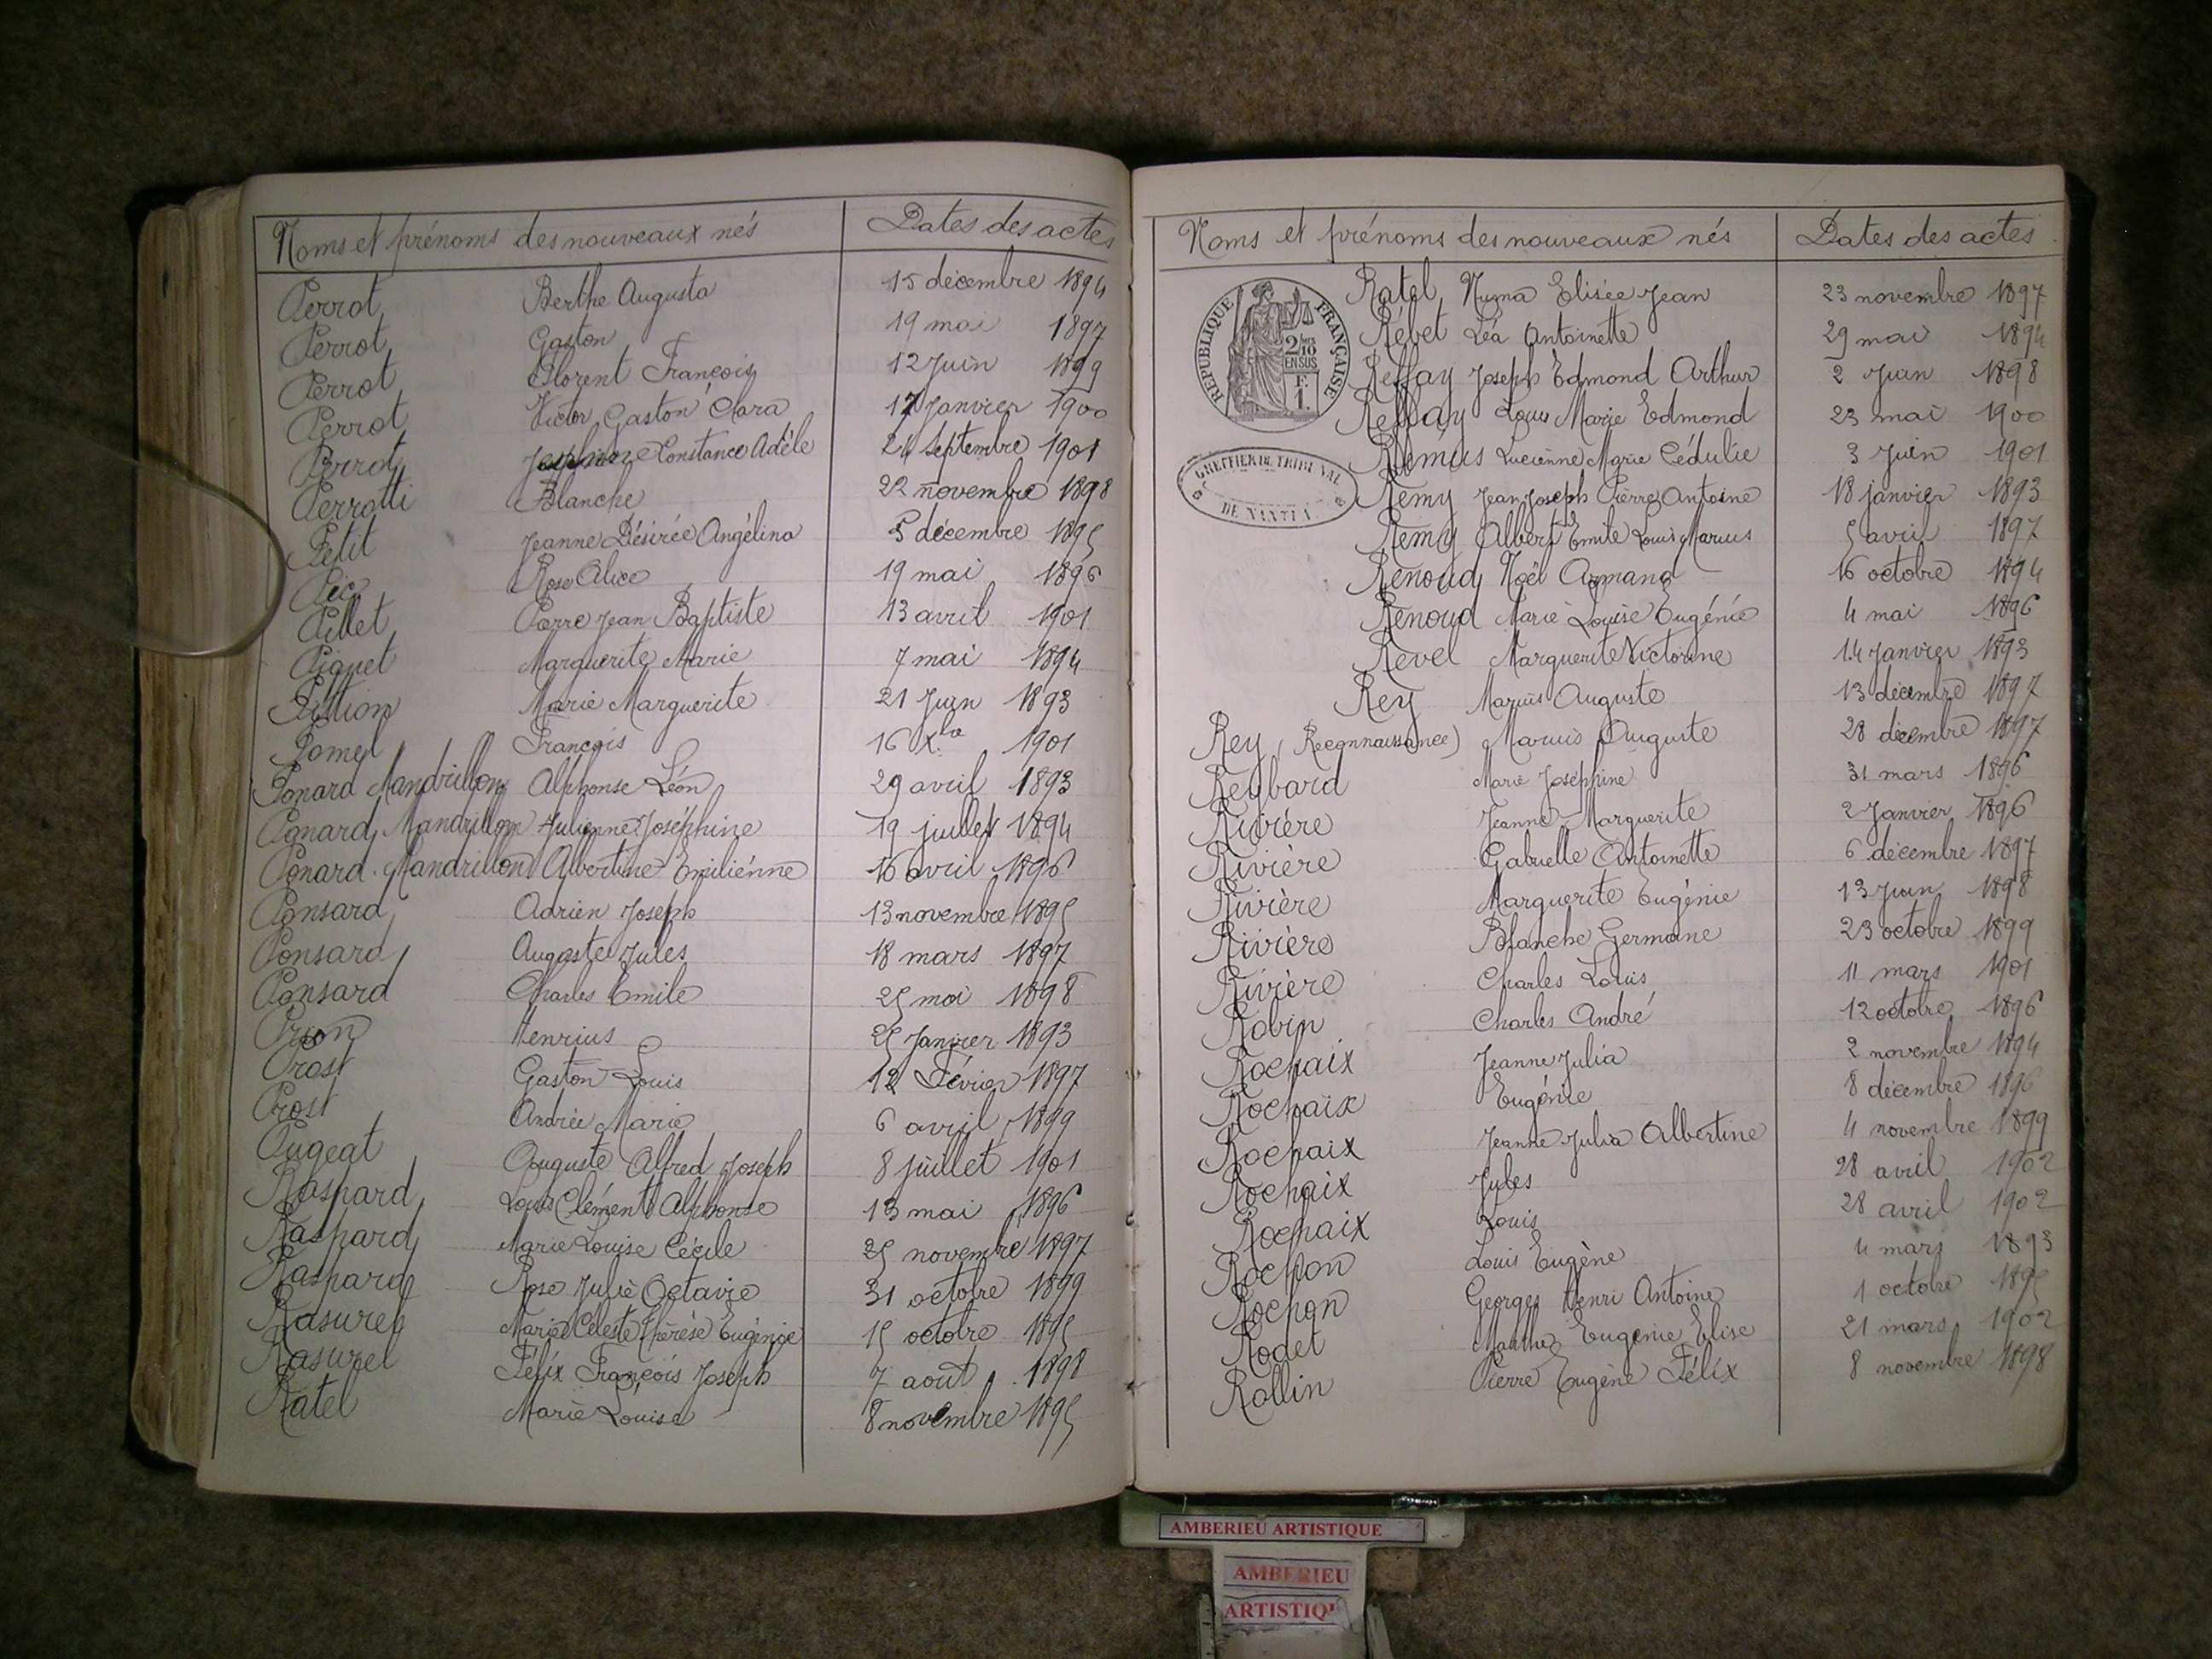 Noms et prénoms des nouveaux nés Dates des actes
Perrot Berthe Augusta 15 décembre 1894
Perrot Gaston 19 mai 1897
Perrot Florent François 12 Juin 1899
Perrot Victor Gaston Clara 17 Janvier 1900
Perrot Josephine Constance Adèle 24 Septembre 1901
Perrotti Blanche 22 novembre 1898
Petit Jeanne Désirée Angélina 5 décembre 1895
Pic Rose Alice 19 mai 1896
Pillet Pierre Jean Baptiste 13 avril 1901
Piquet Marguerite Marie 7 mai 1894
Pistion Marie Marguerite 21 Juin 1893
Pomel François 16 Xbre 1901
Ponard Mandrillon Alphonse Léon 29 avril 1893
Ponard Mandrillon Julienne Joséphine 19 juillet 1894
Ponard. Mandrillon Albertine Emiliénne 16 avril 1896
Ponsard Adrien Joseph 13 novembre 1895
Ponsard Auguste Jules 18 mars 1897
Ponsard Charles Emile 25 mai 1898
Prion Henrius 25 Janvier 1893
Prost Gaston Louis 12 Février 1897
Prost Andrée Marie 6 avril 1899
Pugeat Auguste Alfred Joseph 8 juillet 1901
Raspard Louis Clément Alphonse 13 mai 1896
Raspard Marie Louise Cécile 25 novembre 1897
Raspard Rose Julie Octavie 31 octobre 1899
Rasurel Marie Céleste Thérèse Eugénie 15 octobre 1895
Rasurel Félix François Joseph 7 août 1898
Ratel Marie Louise 8 novembre 1895
Noms et prénoms des nouveaux nés Dates des actes
REPUBLIQUE FRANÇAISE
2/10
EN SUS
F.
1.
GREFFIER DU TRIBUNAL
DE NANTUA
Ratel Numa Elisée Jean 23 novembre 1897
Rébet Léa Antoinette 29 mai 1894
Reffay Joseph Edmond Arthur 2 Juin 1898
Reffay Louis Marie Edmond 23 mai 1900
Rémus Lucienne Marie Cédulie 3 Juin 1901
Remy Jean Joseph Pierre Antoine 18 janvier 1893
Remy Albert Emile Louis Marius 5 avril 1897
Renoud Noël Armand 16 octobre 1894
Renoud Marie Louise Eugénie 4 mai 1896
Revel Marguerite Victorine 14 Janvier 1893
Rey Marius Auguste 13 décembre 1897
Rey (Reconnaissance) Marius Auguste 28 décembre 1897
Reybard Marie Joséphine 31 mars 1896
Rivière Jeanne Marguerite 2 Janvier 1896
Rivière Gabrielle Antoinette 6 décembre 1897
Rivière Marguerite Eugénie 13 Juin 1898
Rivière Blanche Germaine 23 octobre 1899
Rivière Charles Louis 11 mars 1901
Robin Charles André 12 octobre 1896
Rochaix Jeanne Julia 2 novembre 1894
Rochaix Eugénie 8 décembre 1896
Rochaix Jeanne Julia Albertine 4 novembre 1899
Rochaix Jules 28 avril 1902
Rochaix Louis 28 avril 1902
Rochon Louis Eugène 4 mars 1893
Rochon Georges Henri Antoine 1 octobre 1895
Rodet Marthe Eugenie Elise 21 mars 1902
Rollin Pierre Eugène Félix 8 novembre 1898
AMBERIEU ARTISTIQUE
AMBERIEU
ARTISTIQU